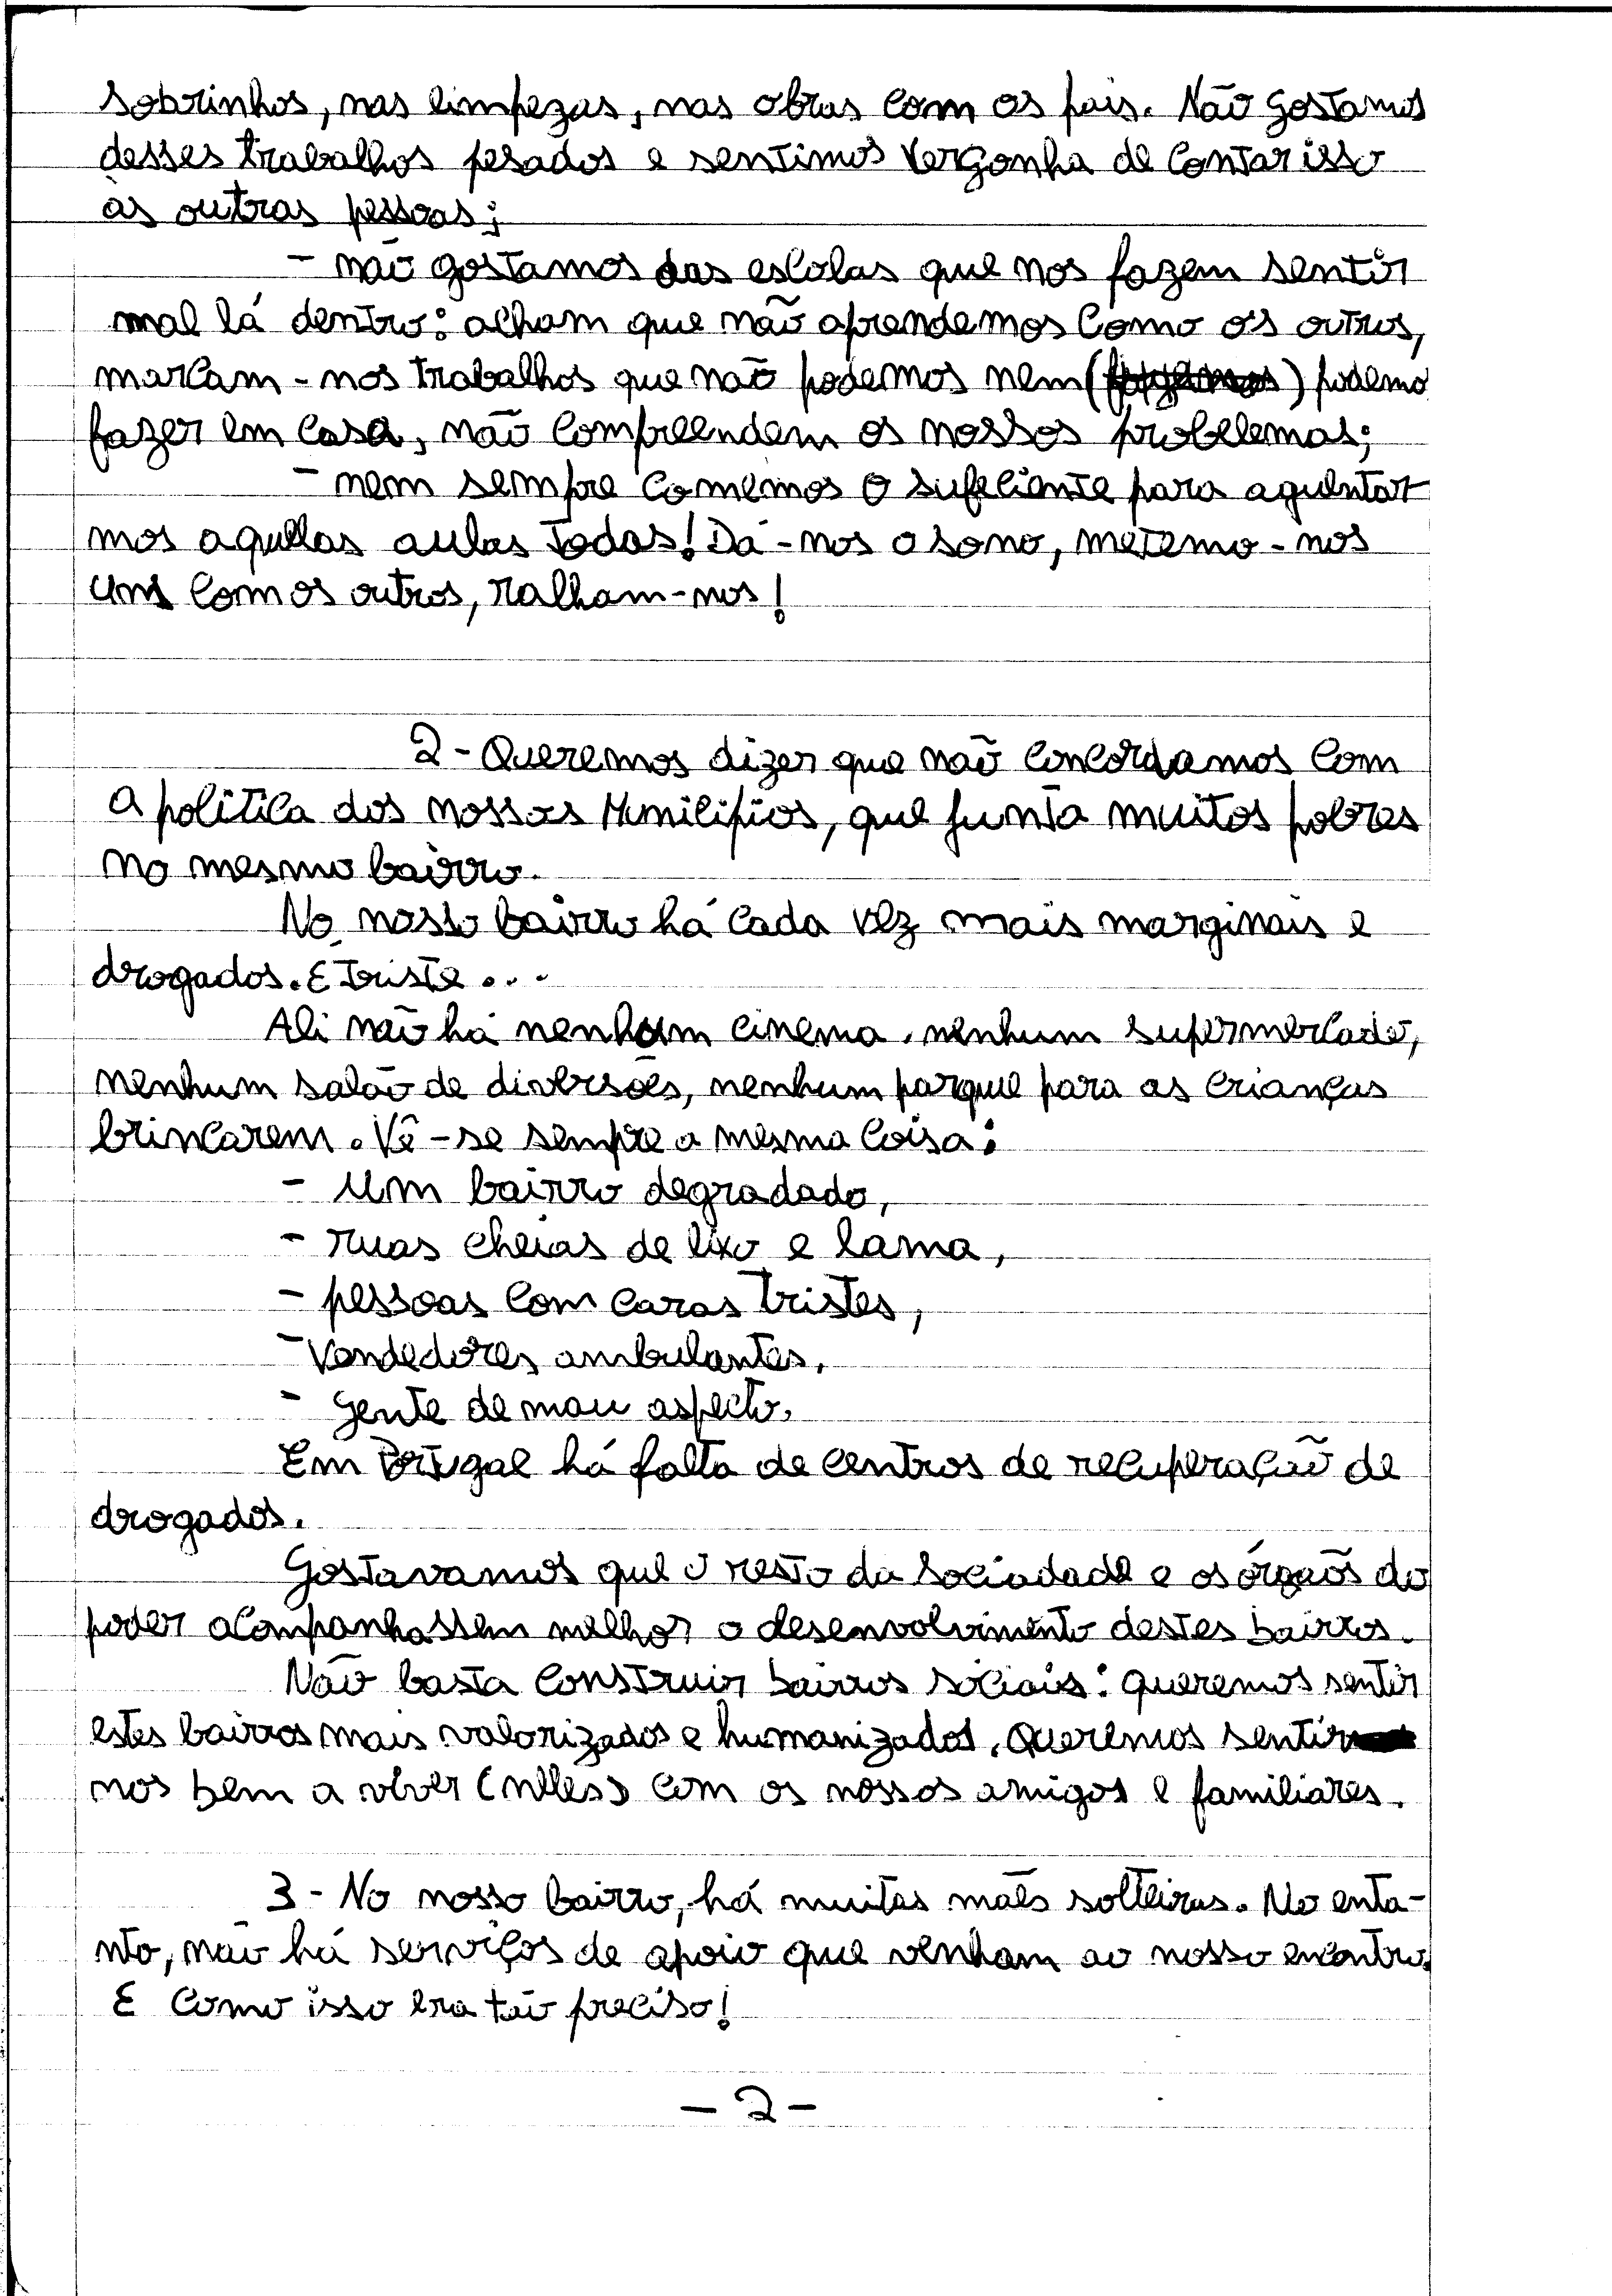 sobrinhos, nas limpezas, nas obras com os pais. Não gostamos
desses trabalhos pesados e sentimos vergonha de contar isso
às outras pessoas;
- não gostamos das escolas que nos fazem sentir
mal lá dentro: acham que não aprendemos como os outros,
marcam-nos trabalhos que não podemos nem ( ) podemo
fazer em casa, não compreendem os nossos probelemas;
- nem sempre comemos o sufeciente para aguentar
mos aquelas aulas todas! Dá-nos o sono, metemo-nos
uns com os outros, ralham-nos!
2 - Queremos dizer que não concordamos com
a política dos nossos Municípios, que junta muitos pobres
no mesmo bairro.
No nosso bairro há cada vez mais marginais e
drogados. E triste...
Ali não há nenhum cinema, nenhum supermercado,
nenhum salão de diversões, nenhum parque para as crianças
brincarem. Vê-se sempre a mesma coisa:
- Um bairro degradado,
- ruas cheias de lixo e lama,
- pessoas com caras tristes,
- Vendedores ambulantes,
- gente de mau aspecto.
Em Portugal há falta de centros de recuperação de
drogados.
Gostavamos que o resto da sociedade e os órgãos do
poder acompanhassem melhor o desenvolvimento destes bairros.
Não basta construir bairros sociais: queremos sentir
estes bairros mais valorizados e humanizados. Queremos sentir
nos bem a viver (neles) com os nossos amigos e familiares.
3 - No nosso bairro, há muitas mães solteiras. No enta-
nto, não há serviços de apoio que venham ao nosso encontro.
E como isso era tão preciso!
- 2 -